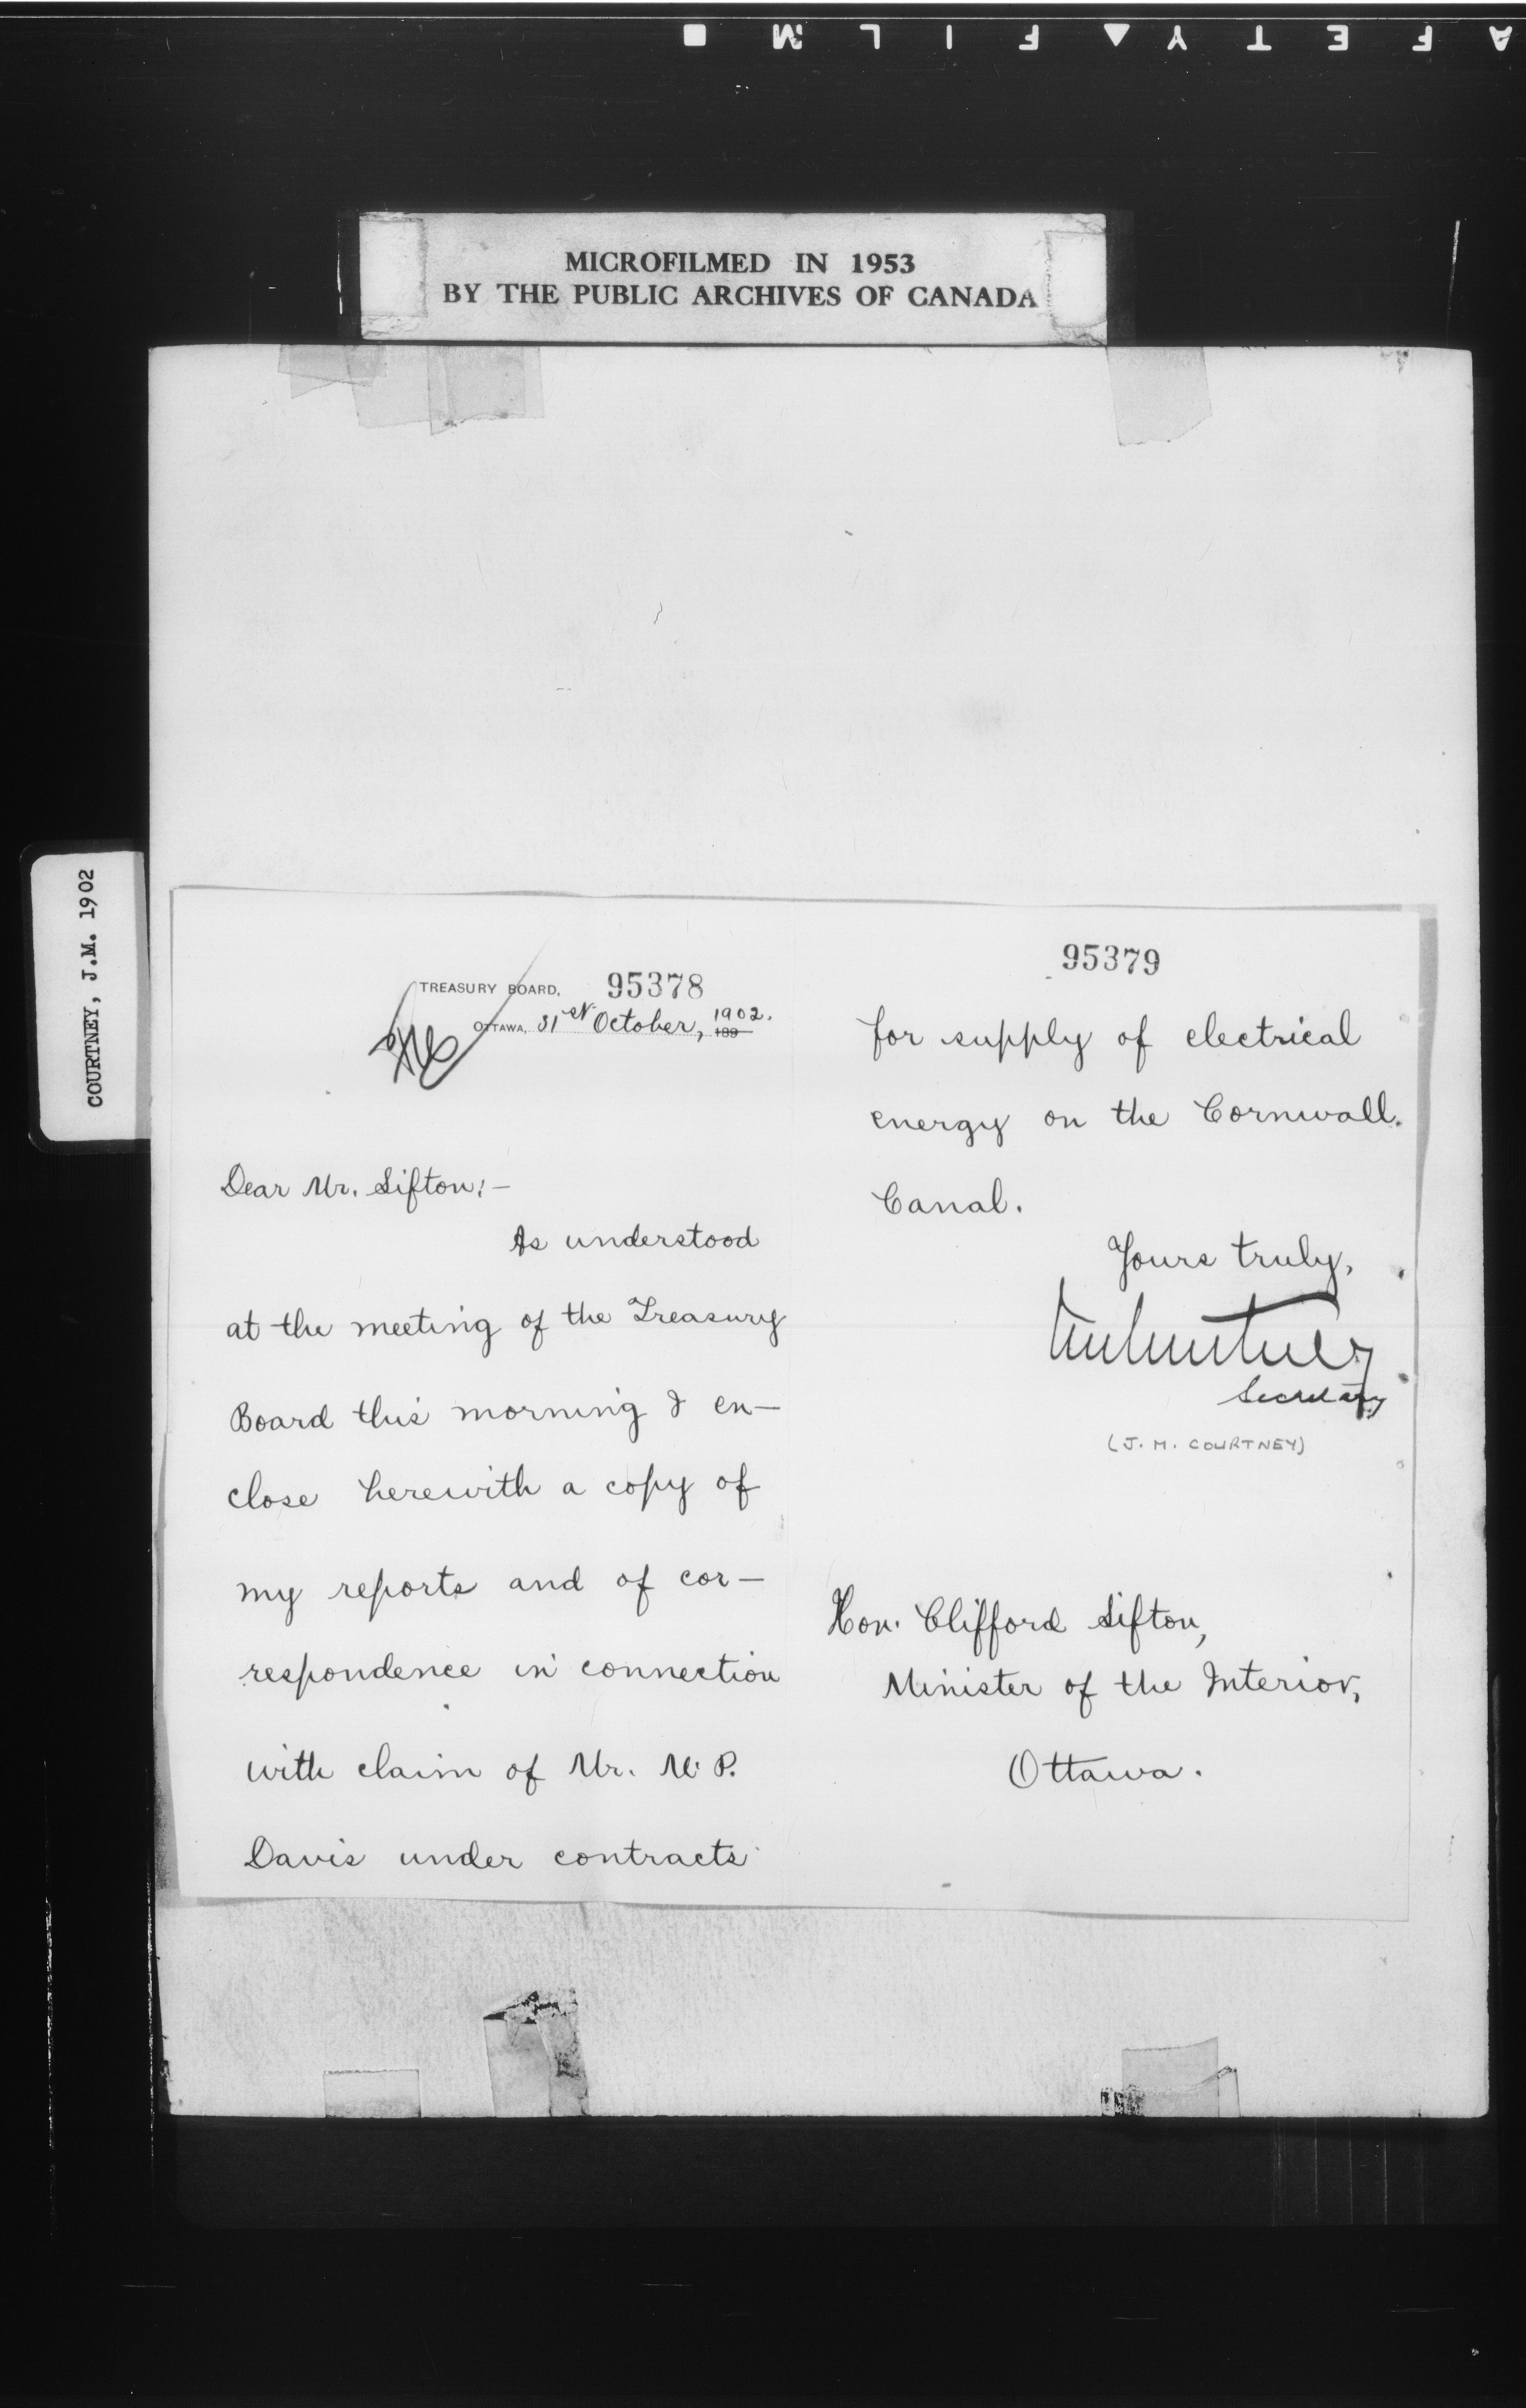 SAFETY▲FILM■
MICROFILMED IN 1953
BY THE PUBLIC ARCHIVES OF CANADA
COURTNEY, J.M. 1902
TREASURY BOARD, 95378
OTTAWA, 31st October, 1902.
189
Dear Mr. Sifton:—
As understood
at the meeting of the Treasury
Board this morning I en—
close herewith a copy of
my reports and of cor—
respondence in connection
with claim of Mr. M. P.
Davis under contracts
95379
for supply of electrical
energy on the Cornwall.
Canal.
Yours truly,
Secretary
(J. M. COURTNEY)
Hon. Clifford Sifton,
Minister of the Interior,
Ottawa.